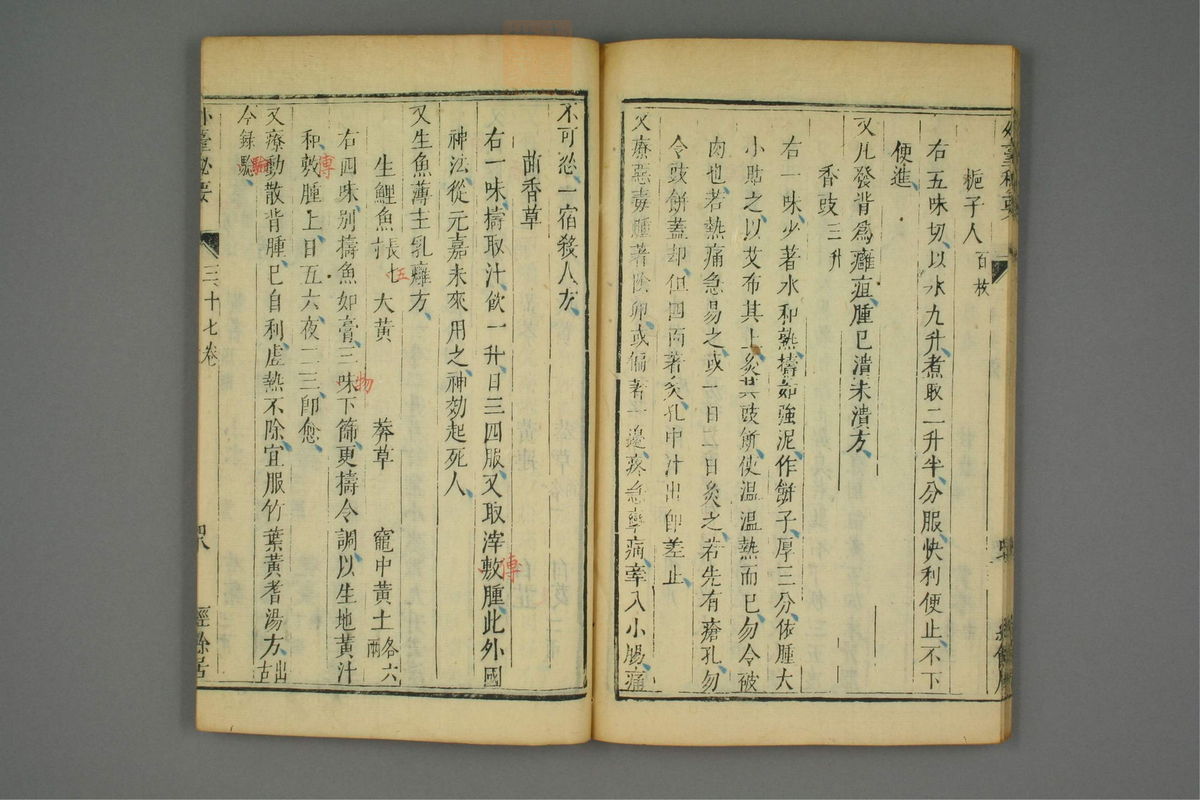 梔子人百枚
右五味切、以水九升、煮取二升半、分服、快利便止、不下
便進、
又凡發背爲癰疽、腫已潰未潰方、
香豉三升
右一味、少著水和熟擣如強泥、作餅子厚三分、依腫大
小貼之、以艾布其上、灸其豉餅、使溫溫熱而已、勿令破
肉也、若熱痛急易之、或一日二日灸之、若先有瘡孔、勿
令豉餅蓋却、但四面著灸、孔中汁出即差止、
又療惡毒腫著陰卵、或偏著一邊、疼急攣痛、牽入小腸、痛
不可忍、一宿殺人方、
茴香草
右一味、擣取汁、飲一升、日三四服、又取滓敷腫、此外國
傅
神法、從元嘉末來用之、神効起死人、
又生魚薄主乳癰方、
生鯉魚長七大黃 莽草 竈中黃土各六兩
五
右四味、別擣魚如膏、三味下篩、更擣令調、以生地黃汁
物
和敷腫上、日五六夜二三、即愈、
傅
又療動散背腫、已自利虛熱不除、宜服竹葉黃耆湯方、出古
今錄驗、
驗
外臺秘要
三十七卷
四八
經餘居